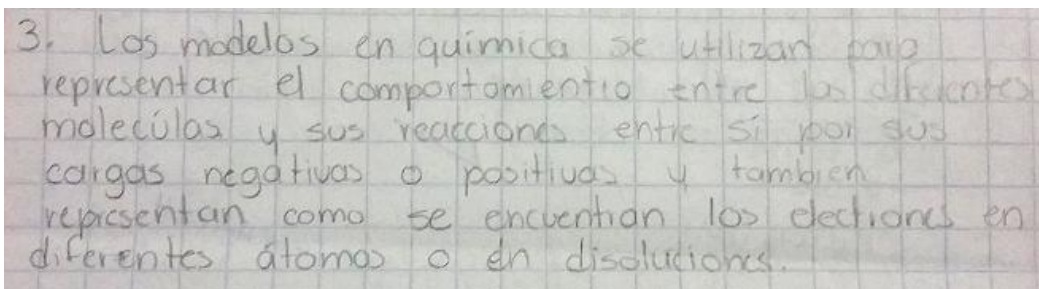 3. Los modelos en química se utilizan para
representar el comportamientio entre las diferentes
moleculas y sus reacciones entre sí por sus
cargas negativas o positivas y tambien
representan como se encuentran los electrones en
diferentes átomos o en disoluciones.